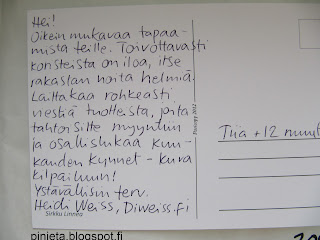 Hei!
Oikein mukavaa tapaa-
mista teille. Toivottavasti
konsteista on iloa, itse
rakastan noita helmiä.
Laittakaa rohkeasti
viestiä tuotteista, joita
tahtoisitte myyntiin
ja osallistukaa kuu-
kauden kynnet - kuva
kilpailuun!
Ystävällisin terv.
Heidi Weiss, Diweiss.fi
Sirkku Linnea
Tiia +12
pinjeta.blogspot.fi